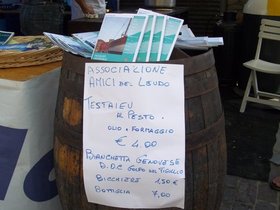 ASSOCIAZIONE
AMICI DEL LEUDO
TESTAIEU
AL PESTO
OLIO E FORMAGGIO
€ 4,00
BIANCHETTA GENOVESE
D.O.C GOLFO DEL TIGULLIO
BICCHIERE 1,50 €
BOTTIGLIA 7,00